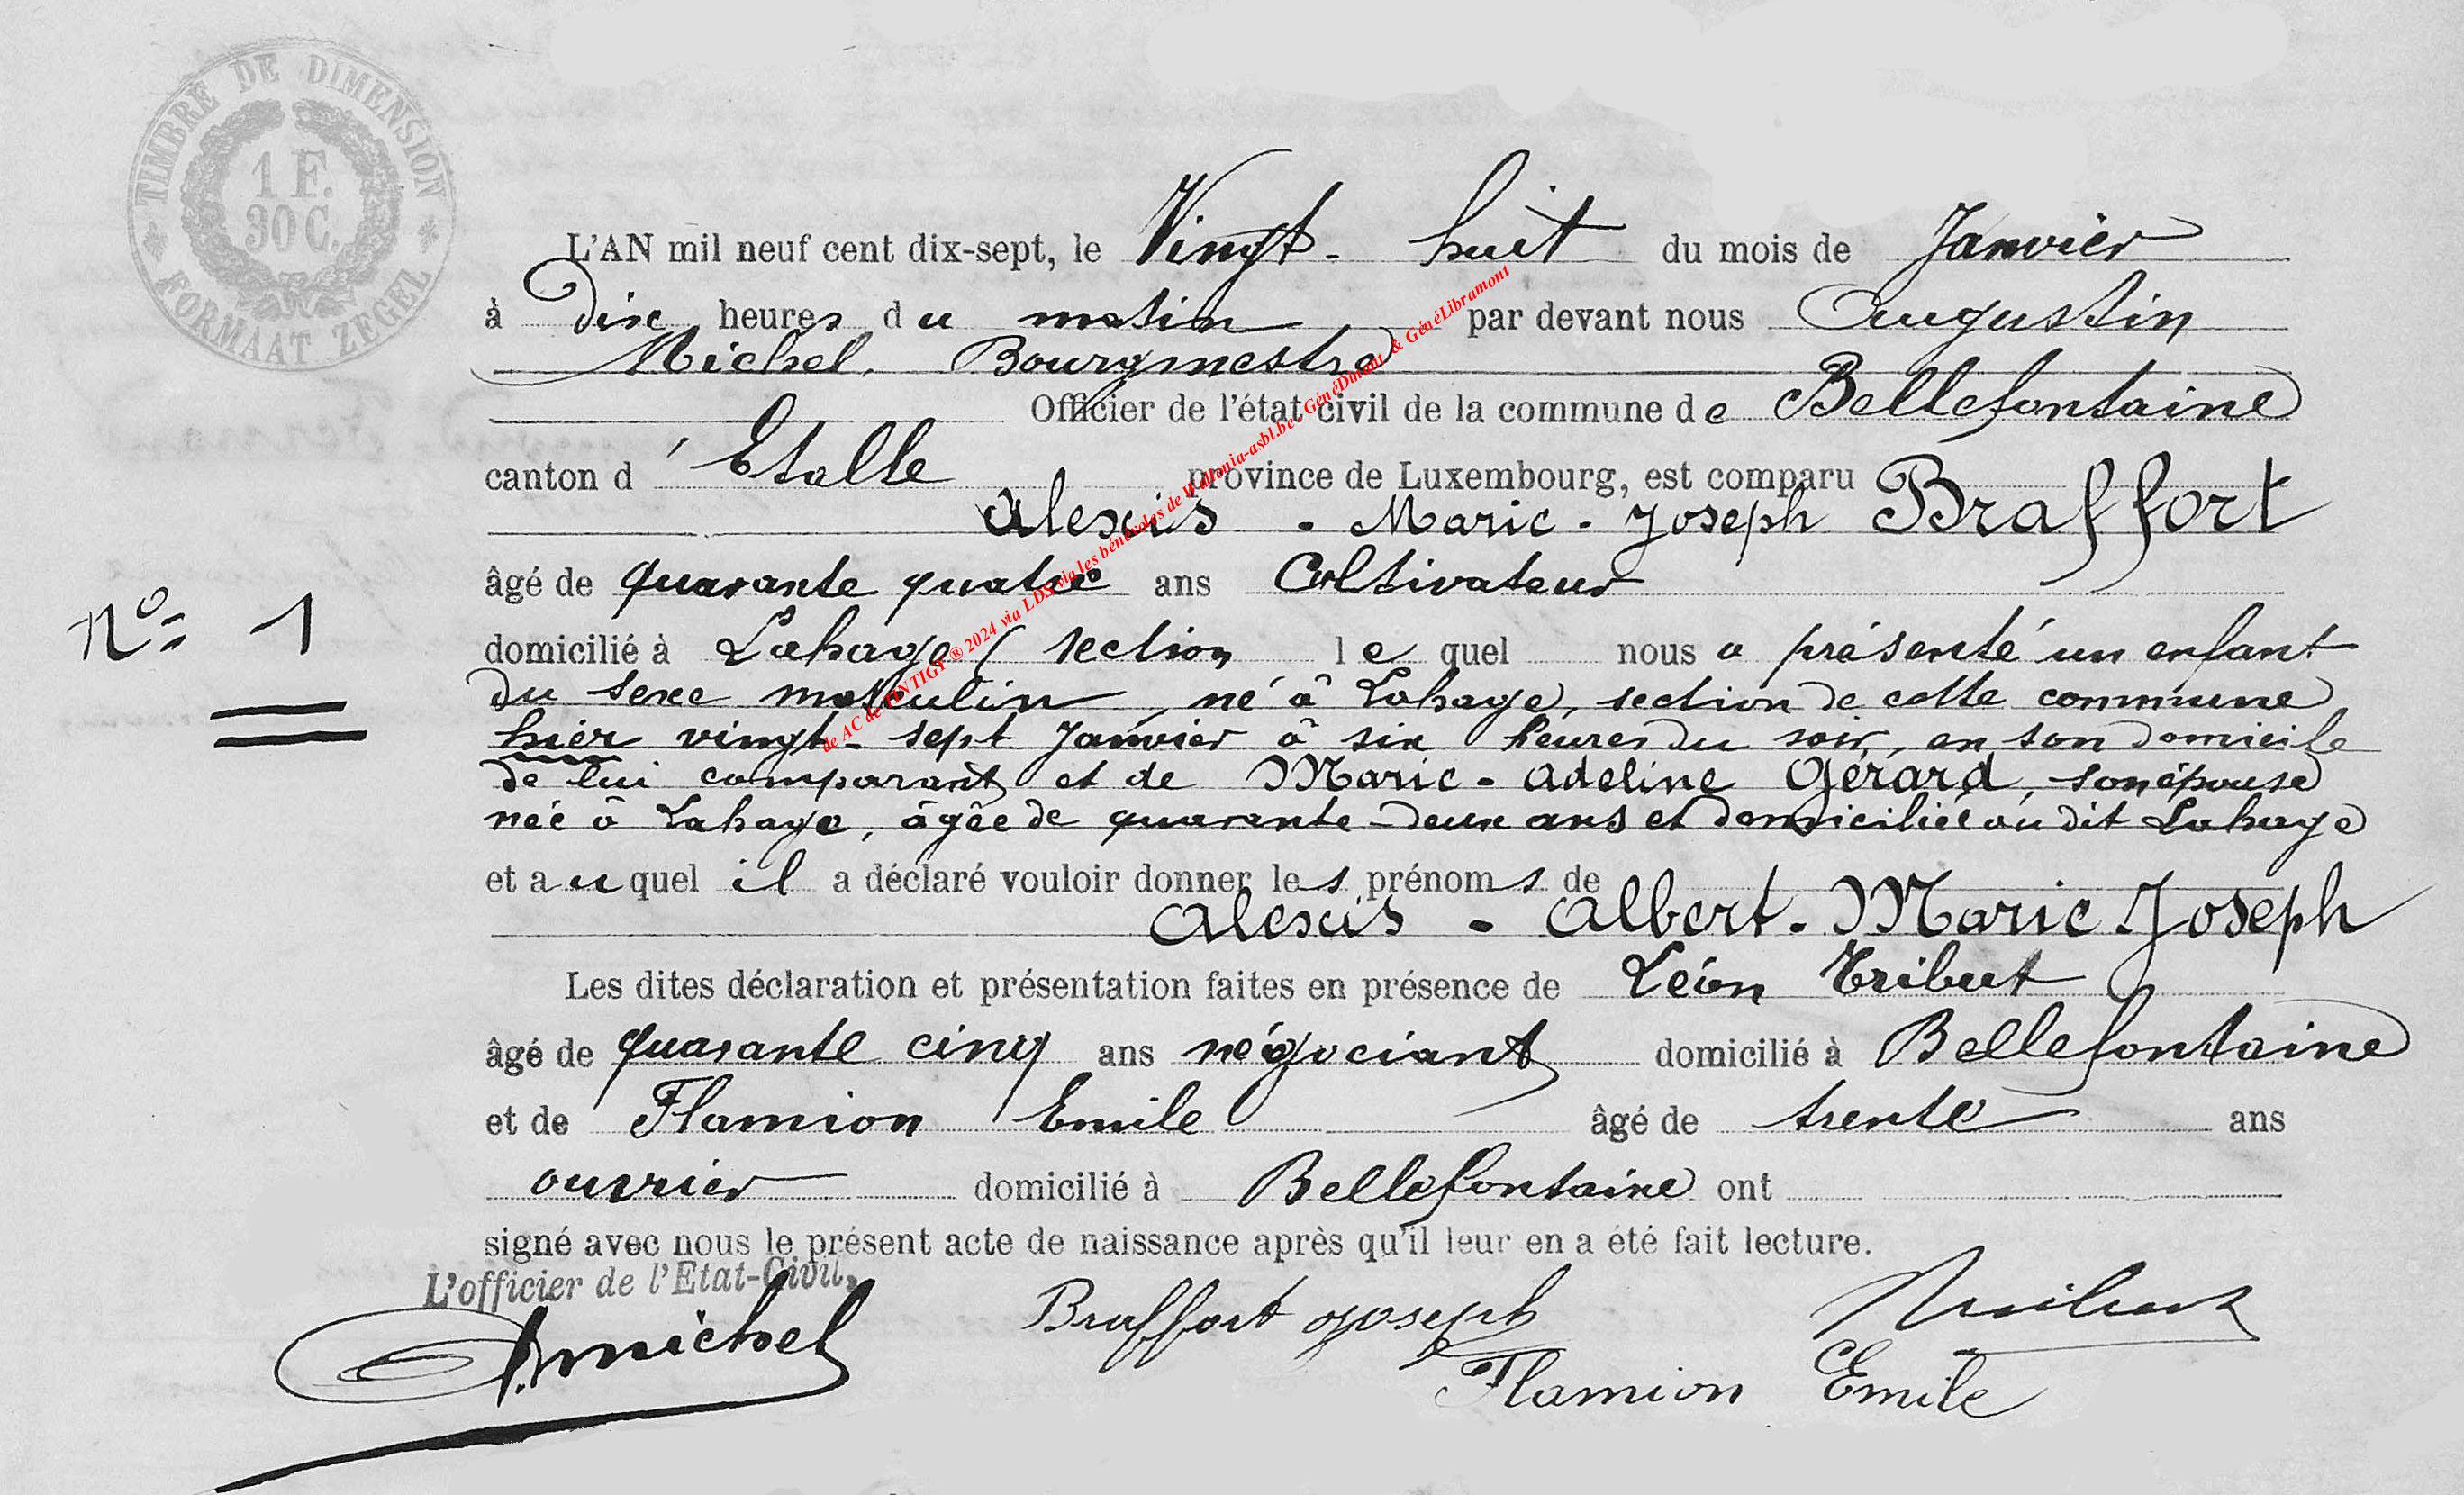 TIMBRE DE DIMENSION
1 F.
30 C.
FORMAAT ZEGEL
L'AN mil neuf cent dix-sept, le Vingt-huit du mois de Janvier
à dix heures du matin par devant nous Augustin
Michel, Bourgmestre
Officier de l'état civil de la commune de Bellefontaine
canton d'Etalle province de Luxembourg, est comparu
Alexis - Marie - Joseph Braffort
âgé de quarante quatre ans Cultivateur
Nº 1
domicilié à Lahage (section lequel nous a présenté un enfant
du sexe masculin, né à Lahage, section de cette commune
hier vingt-sept Janvier à six heures du soir, en son domicile
de lui comparant et de Marie-Adeline Gérard, son épouse
née à Lahage, âgée de quarante-deux ans et domiciliée au dit Lahage
et auquel il a déclaré vouloir donner les prénoms de
Alexis - Albert - Marie Joseph
Les dites déclaration et présentation faites en présence de Léon Tribut
âgé de quarante cinq ans négociant domicilié à Bellefontaine
et de Flamion Emile âgé de trente ans
ouvrier domicilié à Bellefontaine ont
signé avec nous le présent acte de naissance après qu'il leur en a été fait lecture.
L'officier de l'Etat-Civil,
A. Michel
Braffort Joseph
Tribut
Flamion Emile
de AC de TINTIGY ® 2024 via LDS via les bénévoles de Wallonia-asbl.be - GénéDinant & GénéLibramont